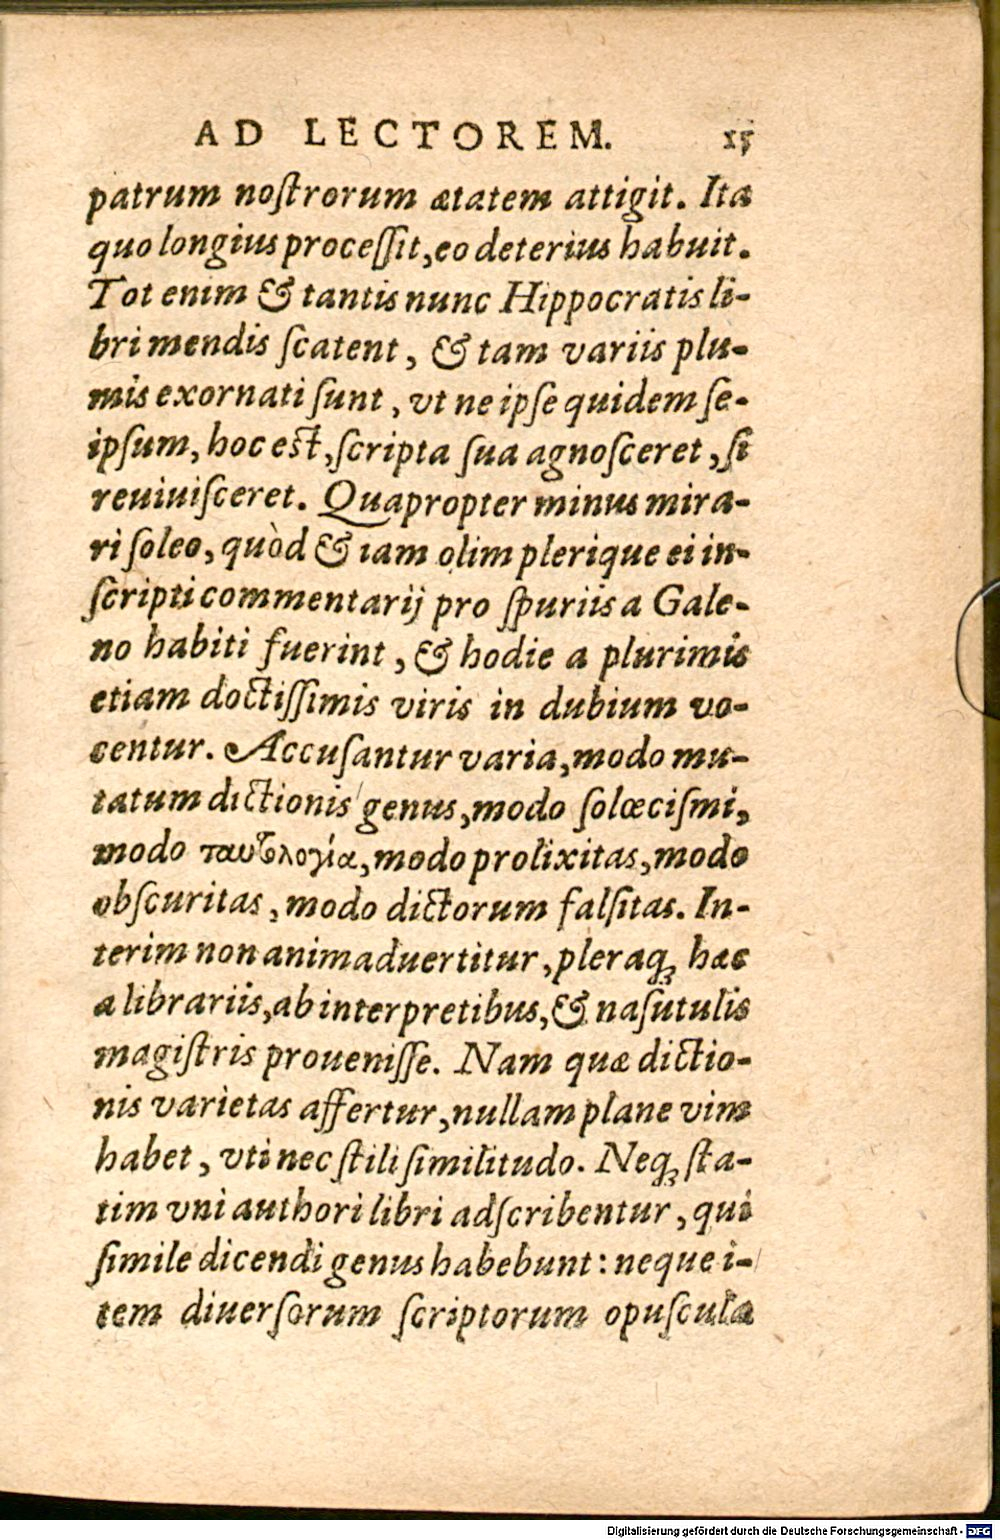 AD LECTOREM. 15
patrum noſtrorum ætatem attigit. Ita
quo longius proceſſit, eo deterius habuit.
Tot enim & tantis nunc Hippocratis li-
bri mendis ſcatent, & tam variis plu-
mis exornati ſunt, vt ne ipſe quidem ſe-
ipſum, hoc eſt, ſcripta ſua agnoſceret, ſi
reuiuiſceret. Quapropter minus mira-
ri ſoleo, quòd & iam olim plerique ei in-
ſcripti commentarij pro ſpuriis a Gale-
no habiti fuerint, & hodie a plurimis
etiam doctiſſimis viris in dubium vo-
centur. Accuſantur varia, modo mu-
tatum dictionis genus, modo ſolœciſmi,
modo ταυτολογία, modo prolixitas, modo
obſcuritas, modo dictorum falſitas. In-
terim non animaduertitur, pleraq; hæc
a librariis, ab interpretibus, & naſutulis
magiſtris proueniſſe. Nam quæ dictio-
nis varietas affertur, nullam plane vim
habet, vti nec ſtili ſimilitudo. Neq; ſta-
tim vni authori libri adſcribentur, qui
ſimile dicendi genus habebunt: neque i-
tem diuerſorum ſcriptorum opuſcula
Digitalisierung gefördert durch die Deutsche Forschungsgemeinschaft - DFG